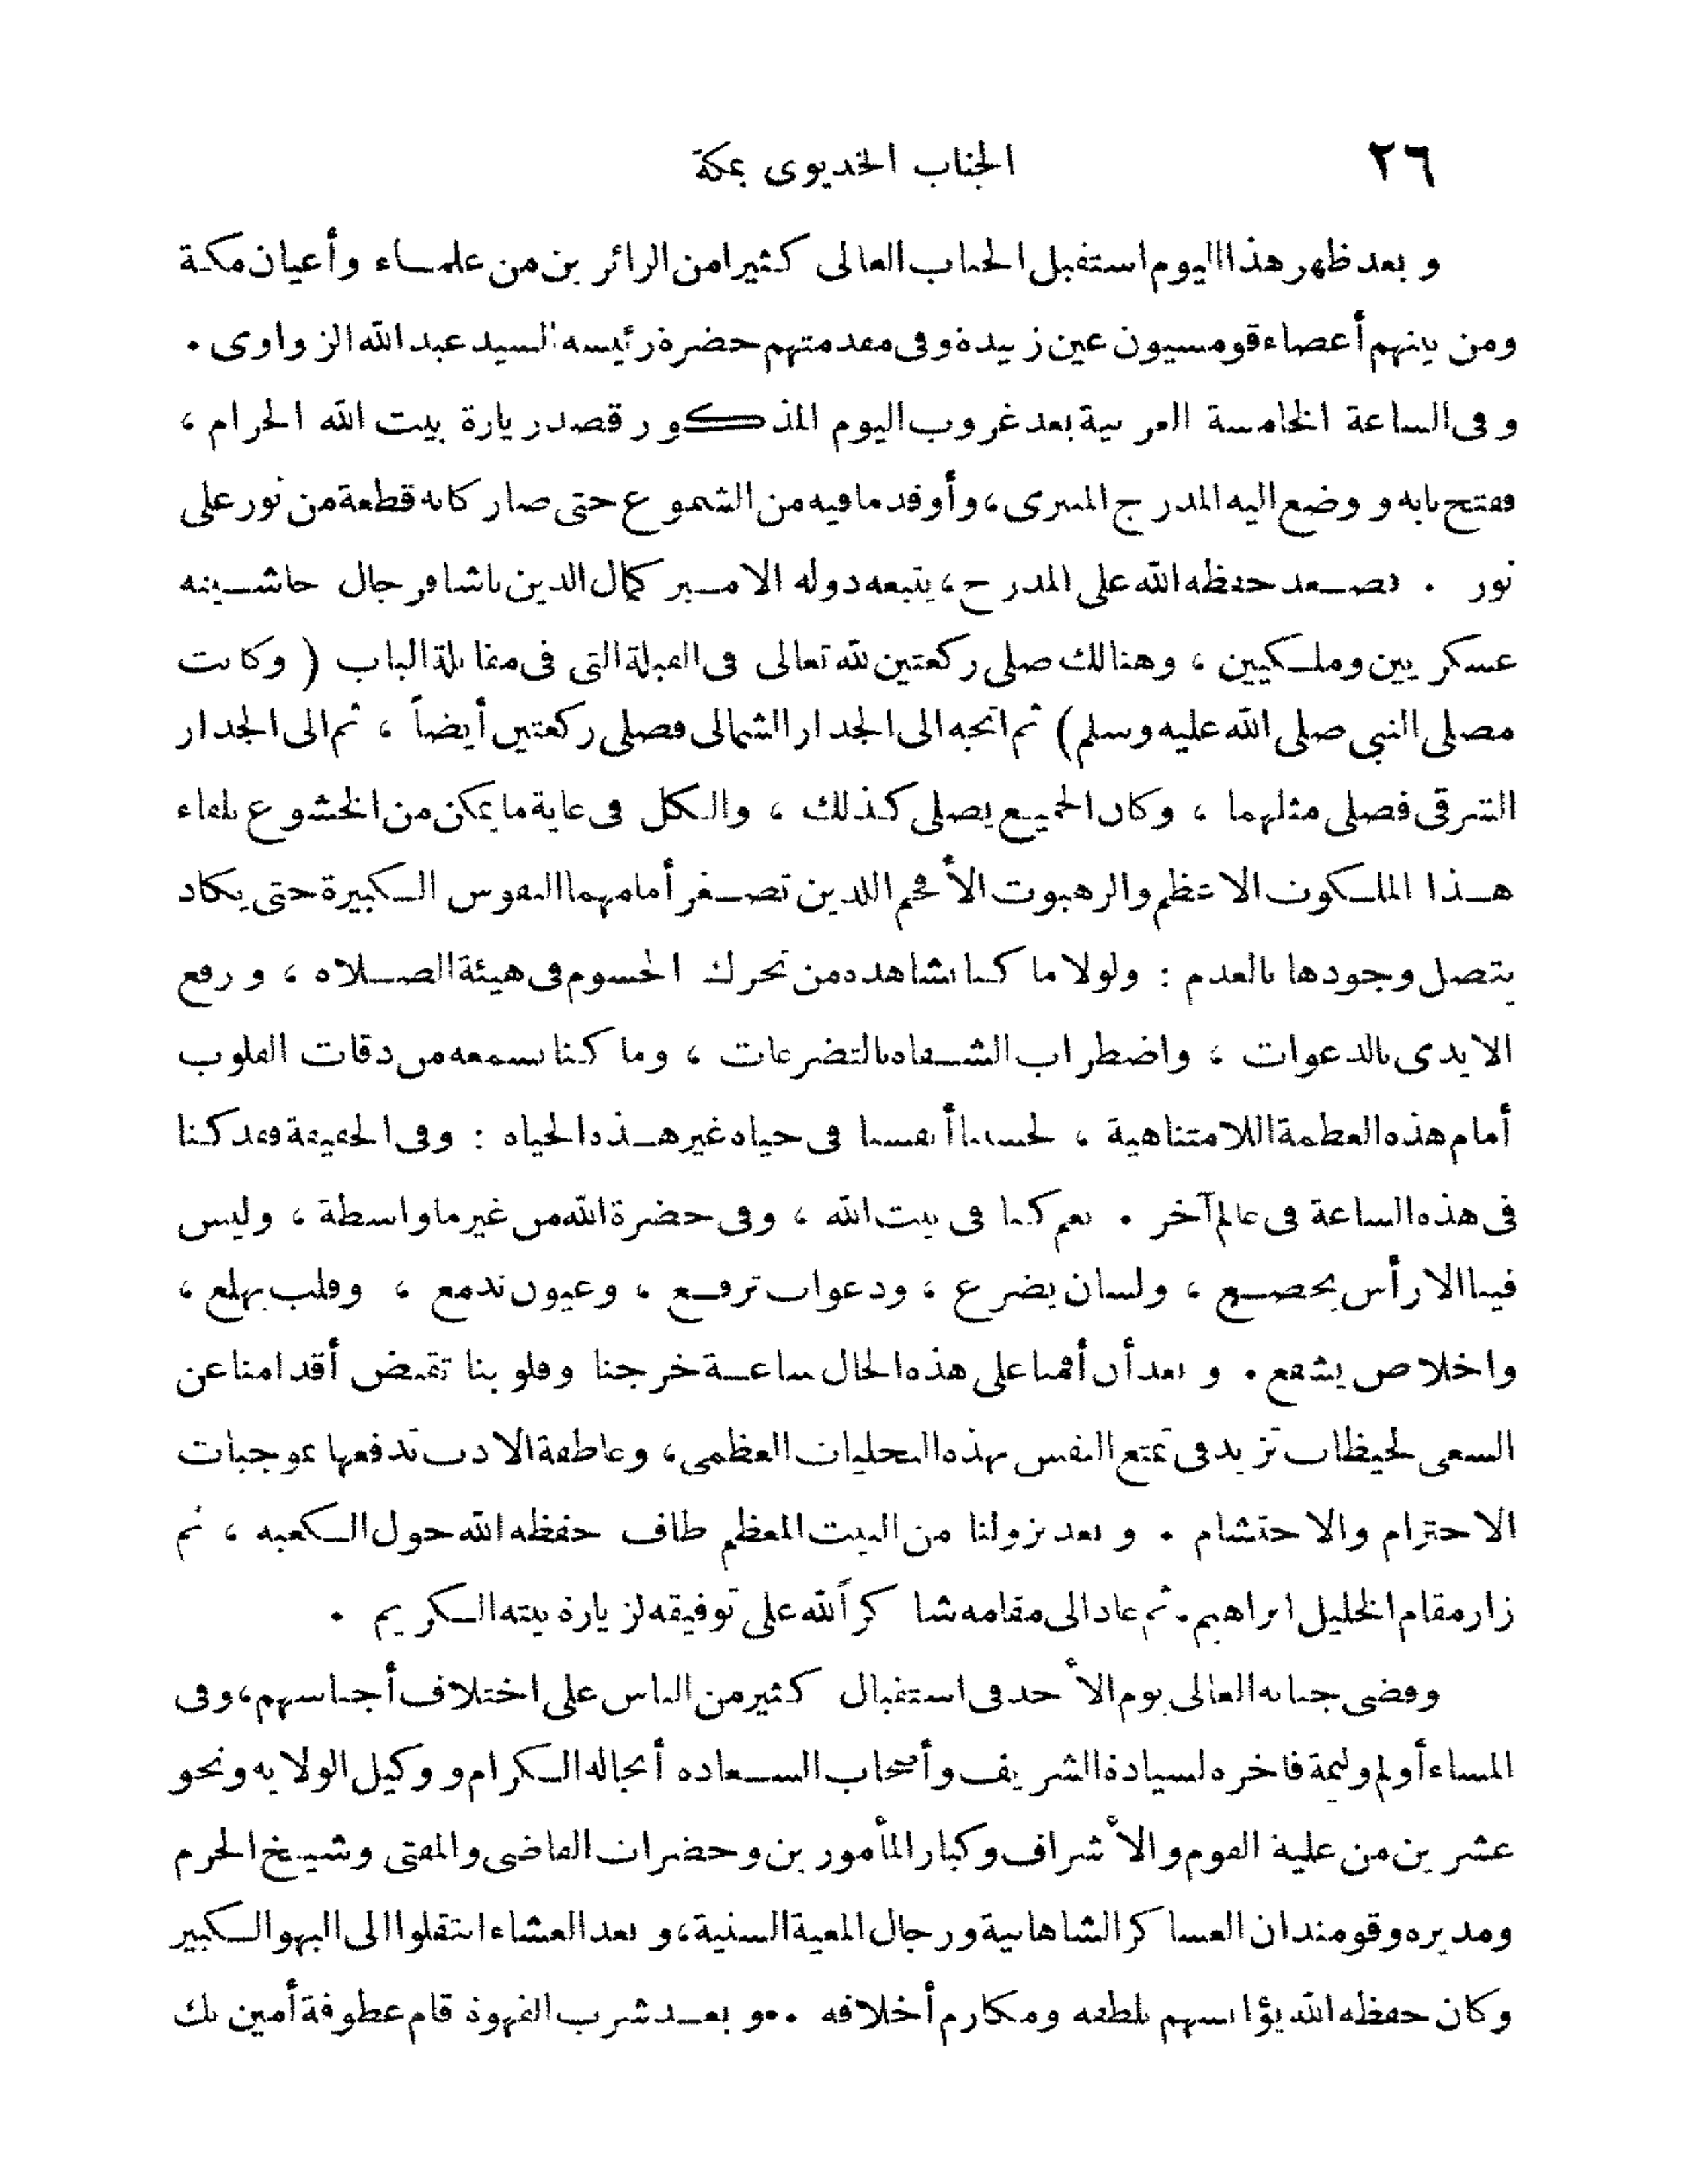 ٢٦
الجناب الخديوى بمكة
و بعد ظهر هذا اليوم استقبل الجناب العالى كثيرا من الزائرين من علماء وأعيان مكة
ومن بينهم أعضاء قومسيون عين زبيدة وفى مقدمتهم حضرة رئيسه السيد عبد الله الزواوى .
وفى الساعة الخامسة العربية بعد غروب اليوم المذكور قصد زيارة بيت الله الحرام ،
ففتح بابه و وضع اليه المدرج المسرى ، وأوقد مافيه من الشموع حتى صار كانه قطعة من نور على
نور . فصعد حفظه الله على المدرج ، يتبعه دولة الامير كمال الدين باشا فرجال حاشيته
عسكريين وملكيين ، وهنالك صلى ركعتين لله تعالى فى القبلة التى فى مقابلة الباب ( وكانت
مصلى النبى صلى الله عليه وسلم ) ثم اتجه الى الجدار الشمالى فصلى ركعتين أيضاً ، ثم الى الجدار
الشرقى فصلى مثلهما ، وكان الجميع يصلى كذلك ، والكل فى غاية ما يمكن من الخشوع تلقاء
هذا الملكوت الاعظم والرهبوت الأفخم اللدين تصغر أمامهما النفوس الكبيرة حتى يكاد
يتصل وجودها بالعدم : ولولا ما كنا نشاهده من تحرك الجسوم فى هيئة الصلاه ، و رفع
الايدى بالدعوات ، واضطراب الشفاه بالتضرعات ، وما كنا نسمعه من دقات القلوب
أمام هذه العظمة اللامتناهية ، لحسبنا أنفسنا فى حياه غير هذه الحياه : وفى الحقيقة فقد كنا
فى هذه الساعة فى عالم آخر . نعم كنا فى بيت الله ، وفى حضرة الله من غير ما واسطة ، وليس
فينا الا رأس يخضع ، ولسان يضرع ، ودعوات ترفع ، وعيون تدمع ، وقلب يهلع ،
واخلاص يشفع . و بعد أن أقمنا على هذه الحال ساعة خرجنا وقلوبنا تقبض أقدامنا عن
السعى لحيظات تزيد فى تمتع النفس بهذه التجليات العظمى ، وعاطفة الادب تدفعها بموجبات
الاحترام والاحتشام . و بعد نزولنا من البيت المعظم طاف حفظه الله حول الكعبه ، ثم
زار مقام الخليل ابراهيم . ثم عاد الى مقامه شاكراً لله على توفيقه لزيارة بيته الكريم .
وقضى جنابه العالى يوم الأحد فى استقبال كثير من الناس على اختلاف أجناسهم ، وفى
المساء أولم وليمة فاخره لسيادة الشريف وأصحاب السعاده أنجاله الكرام و وكيل الولايه ونحو
عشرين من علية القوم والأشراف وكبار المأمورين وحضرات القاضى والمفتى وشيخ الحرم
ومديره وقومندان العساكر الشاهانية ورجال المعية السنية ، و بعد العشاء انتقلوا الى البهو الكبير
وكان حفظه الله يؤانسهم بلطفه ومكارم أخلاقه .. و بعد شرب القهوة قام عطوفة أمين بك